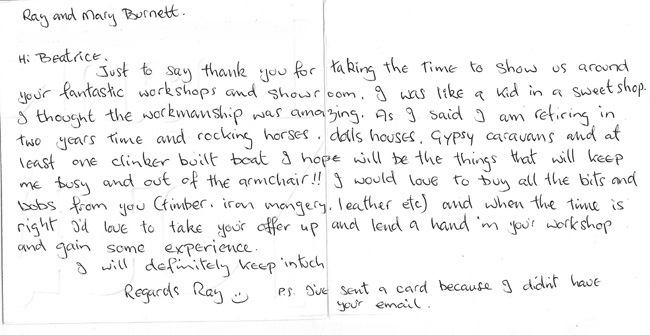 Ray and Mary Burnett.
Hi Beatrice.
Just to say thank you for taking the time to show us around
your fantastic workshops and showroom. I was like a kid in a sweetshop.
I thought the workmanship was amazing. As I said I am retiring in
two years time and rocking horses. dolls houses. Gypsy caravans and at
least one clinker built boat I hope will be the things that will keep
me busy and out of the armchair!! I would love to buy all the bits and
bobs from you (timber. iron mongery. leather etc) and when the time is
right I'd love to take your offer up and lend a hand in your workshop
and gain some experience.
I will definitely keep intuch
Regards Ray P.S. I've sent a card because I didn't have
your email.